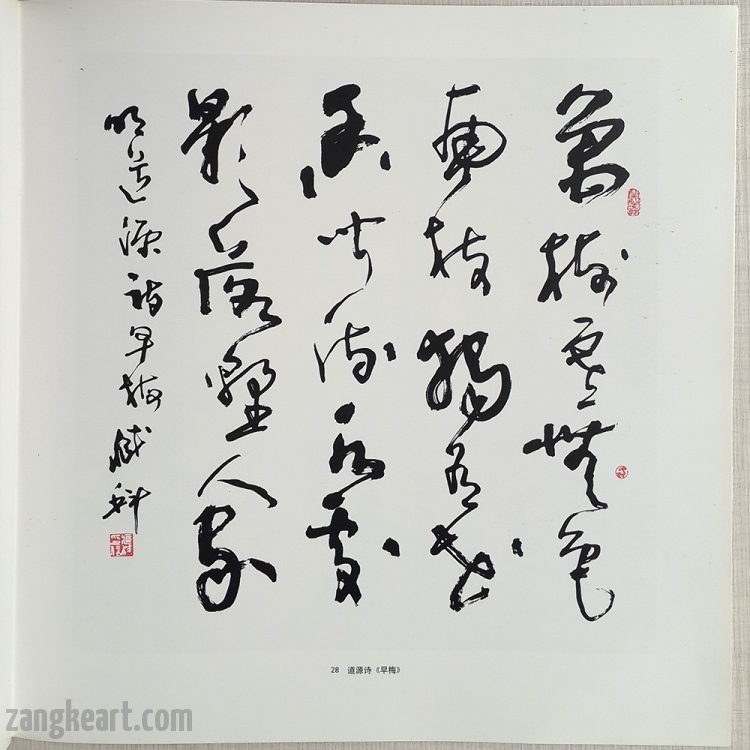 萬樹寒無色
南枝獨有花
香聞流水處
影落野人家
明道源詩早梅臧科
28 道源诗《早梅》
zangkeart.com